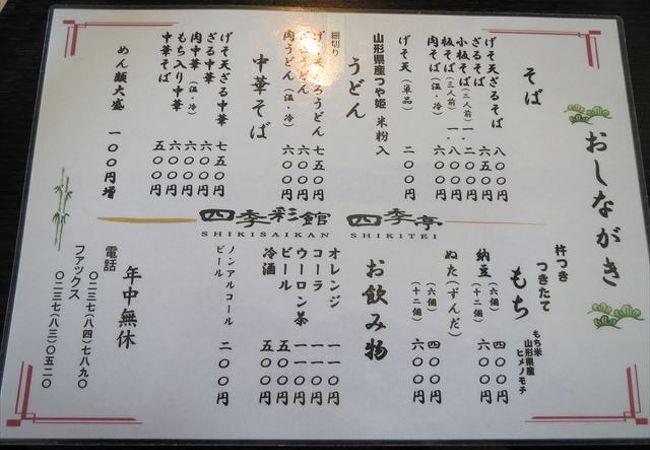 おしながき
そば
げそ天ざるそば 八〇〇円
ざるそば 六五〇円
小板そば(二人前) 一.二〇〇円
板そば(三人前) 一.八〇〇円
肉そば(温・冷) 六〇〇円
げそ天(単品) 二〇〇円
山形県産つや姫 米粉入
うどん
細切り
げそ天ざるうどん 七五〇円
ざるうどん 六〇〇円
肉うどん(温・冷) 六〇〇円
中華そば
げそ天ざる中華 七五〇円
ざる中華 六〇〇円
肉中華(温・冷) 六〇〇円
もち入り中華 六〇〇円
中華そば 五〇〇円
めん類大盛 一〇〇円増
四季彩館 四季亭
SHIKISAIKAN SHIKITEI
杵つき
つきたて
もち
もち米
山形県産
ヒメノモチ
納豆(六個) 四〇〇円
(十二個) 六〇〇円
ぬた(ずんだ)
(六個) 四〇〇円
(十二個) 六〇〇円
お飲み物
オレンジ 一一〇円
コーラ 一一〇円
ウーロン茶 一一〇円
ビール 五〇〇円
冷酒 五〇〇円
ノンアルコール
ビール 二〇〇円
年中無休
電話 〇二三七(八四)七八九〇
ファックス 〇二三七(八三)〇五二〇